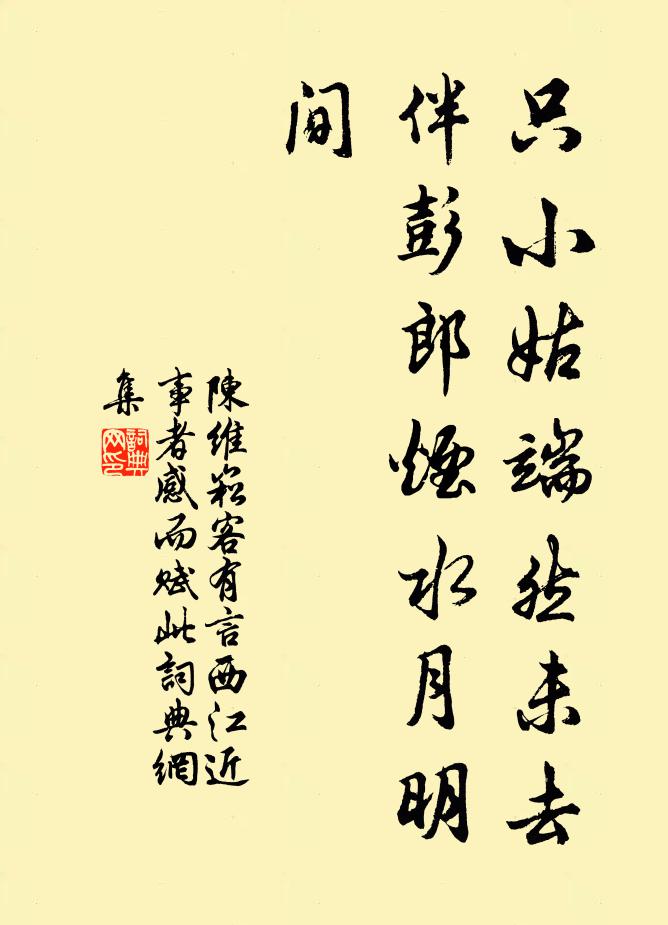 只小姑端然未去
伴彭郎煙水月明
间
陳維崧客有言西江近
事者感而賦此詞典網
集
詞典
网印